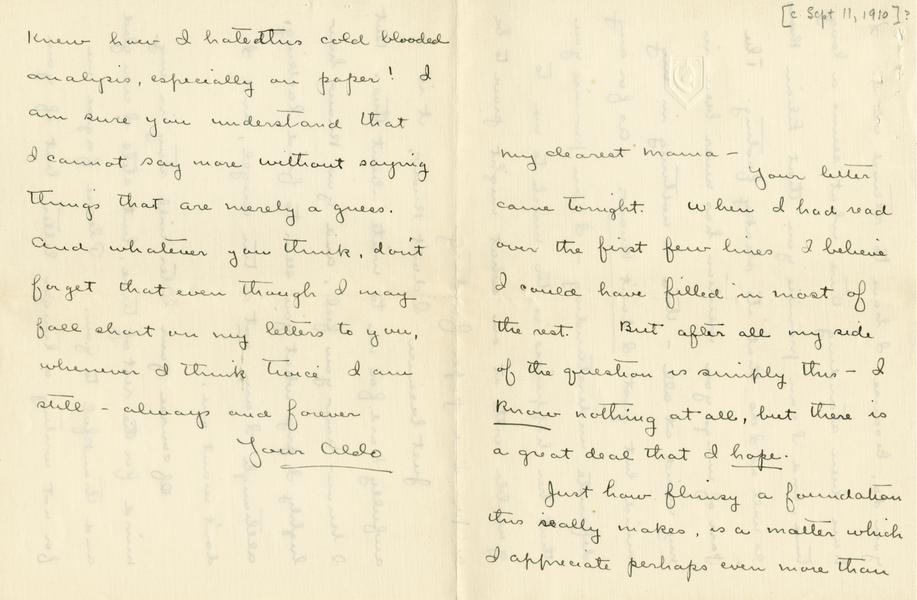 [c. Sept 11, 1910]?
My dearest Mama –
Your letter
came tonight. When I had read
over the first few lines I believe
I could have filled in most of
the rest. But after all my side
of the question is simply this – I
know nothing at all, but there is
a great deal that I hope.
Just how flimsy a foundation
this really makes, is a matter which
I appreciate perhaps even more than
Knew how I hated this cold blooded
analysis, especially on paper! I
am sure you understand that
I cannot say more without saying
things that are merely a guess.
And whatever you think, don't
forget that even though I may
fall short on my letters to you,
whenever I think twice I am
still – always and forever
Your Aldo